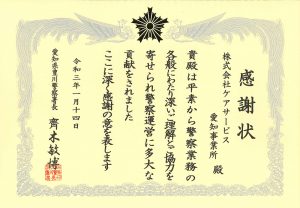 感謝状
株式会社ケアサービス
愛知事業所 殿
貴殿は平素から警察業務の
各般にわたり深いご理解とご協力を
寄せられ警察運営に多大な
貢献をされました
ここに深く感謝の意を表します
令和三年一月十四日
愛知県豊川警察署長
齊木敏博